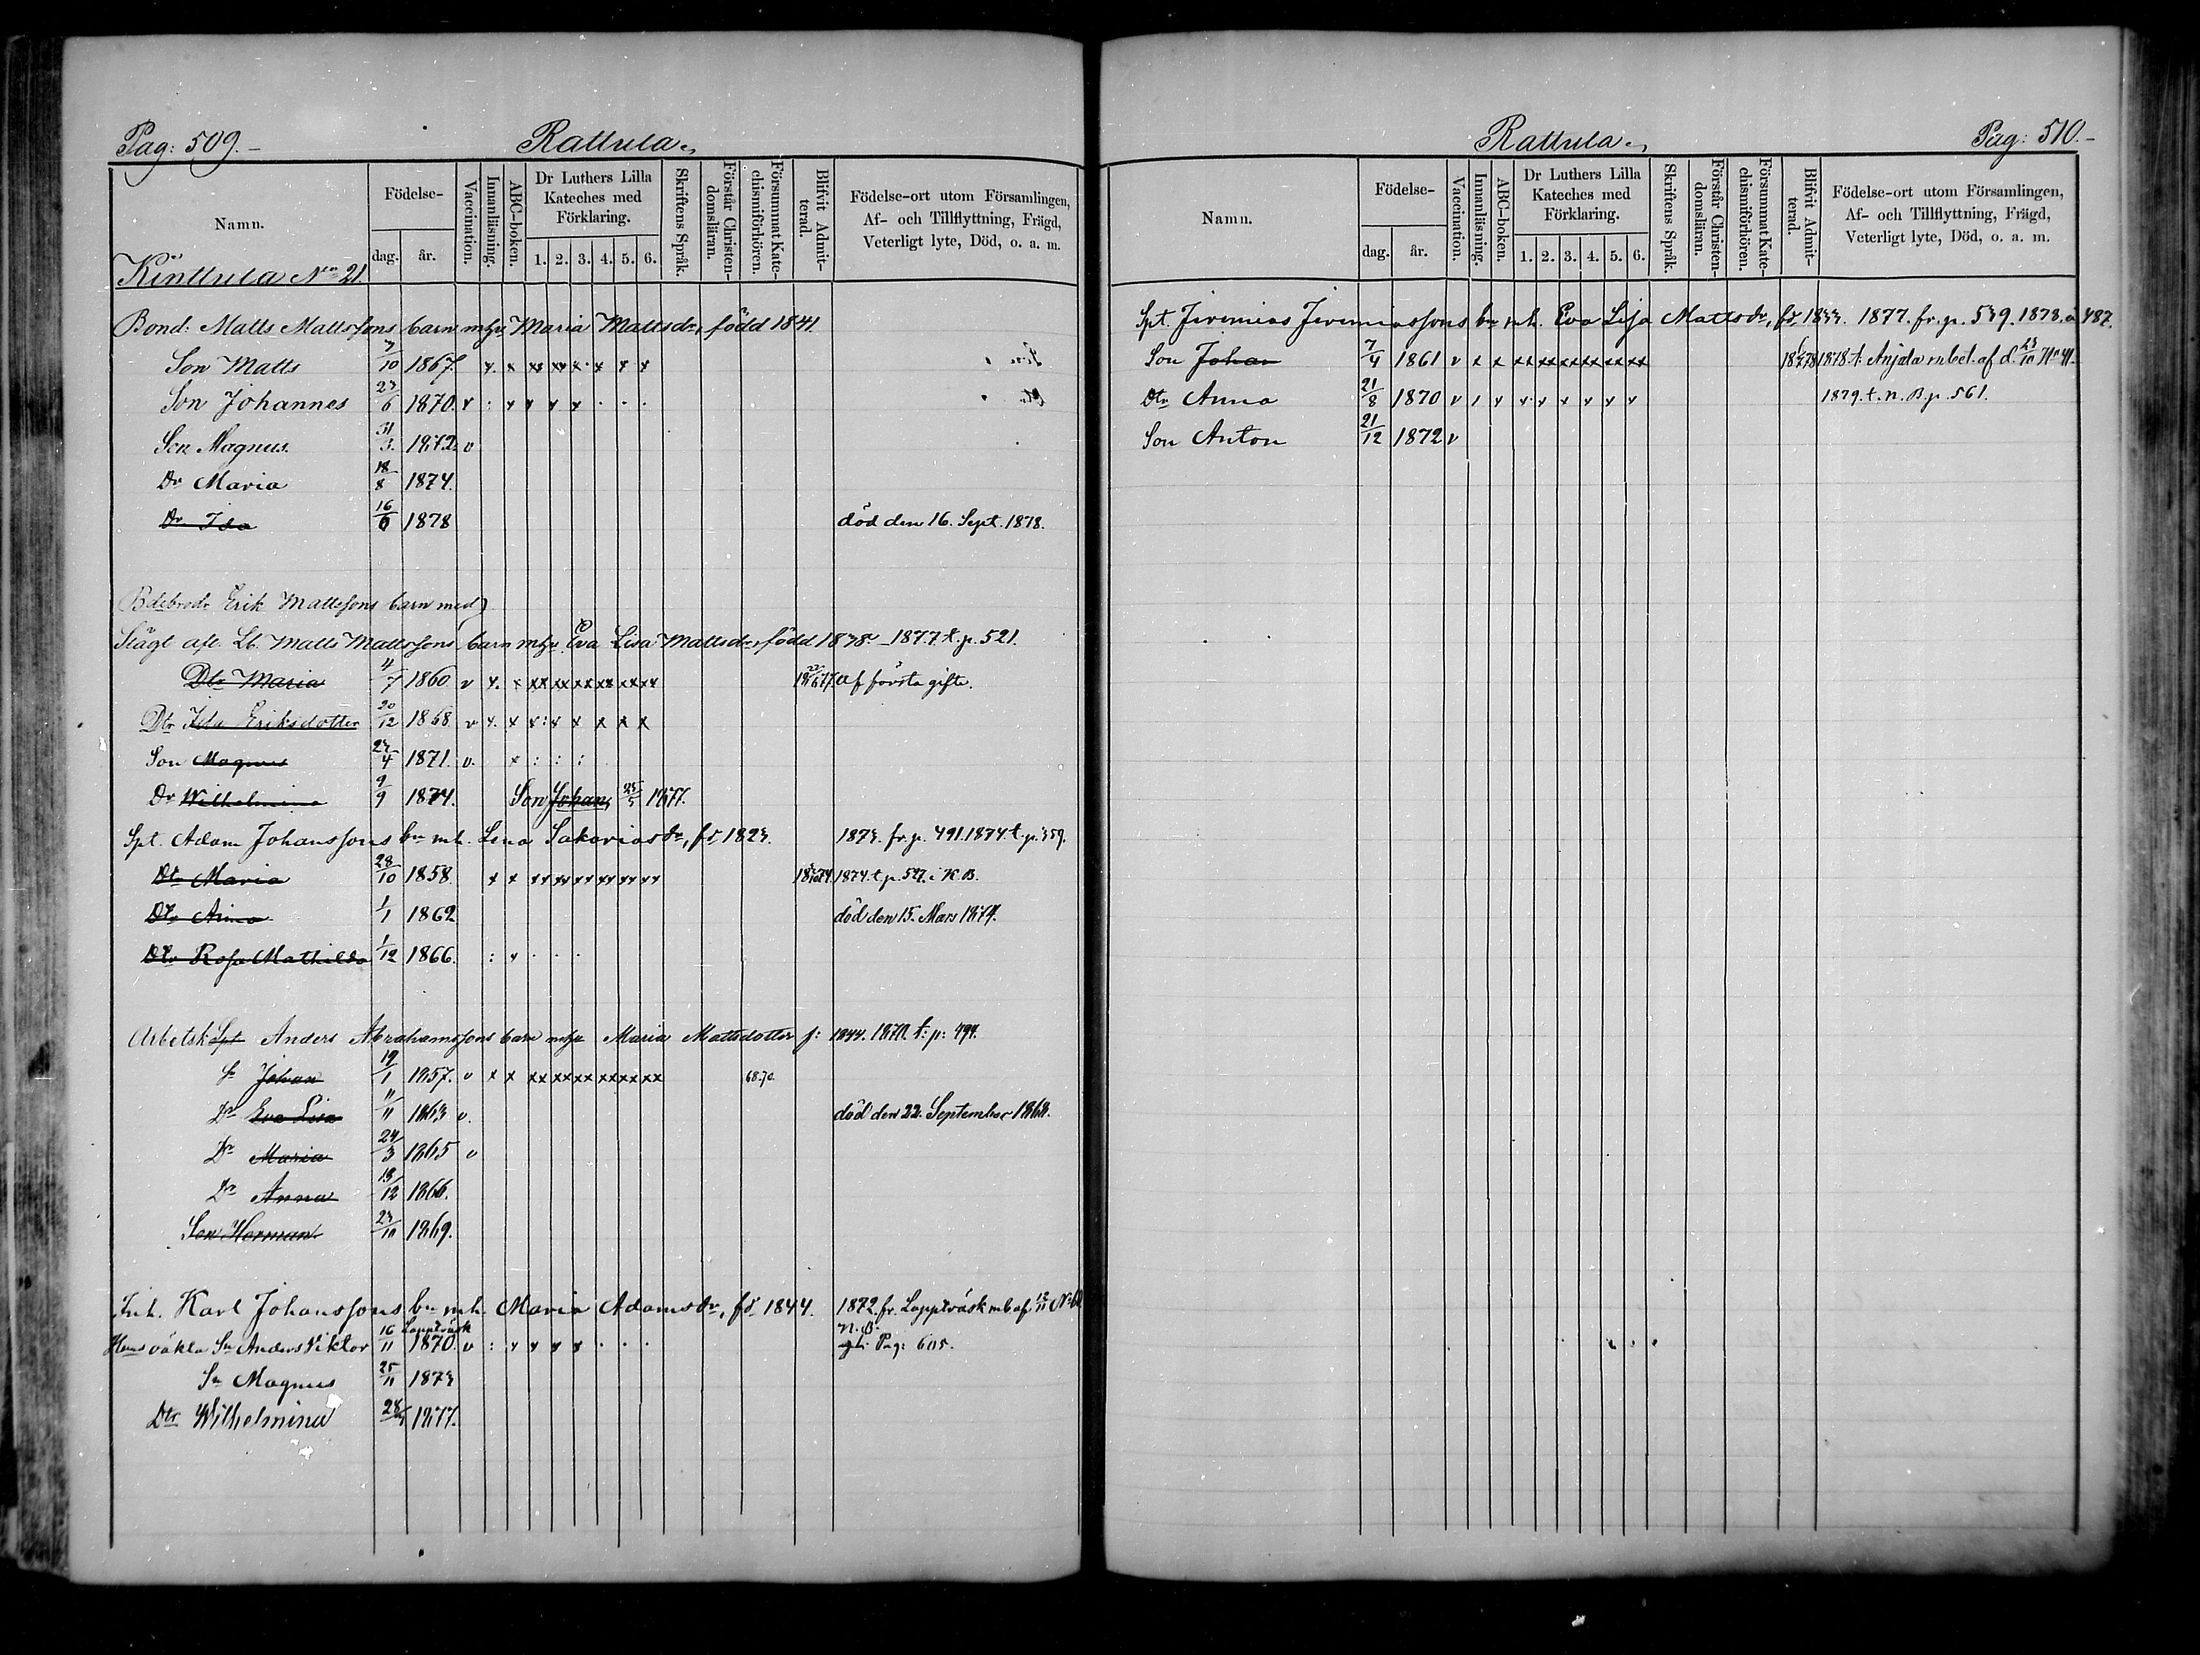 Pag: 509.
Rattula
Namn.
Födelse-
dag.
år.
Vaccination.
Innanläsning.
ABC-boken.
Dr Luthers Lilla Kateches med Förklaring.
1. 2. 3. 4. 5. 6.
Skriftens Språk.
Förstår Christendomsläran.
Försummat Katechismiförhören.
Blifvit Admitterad.
Födelse-ort utom Församlingen,
Af- och Tillflyttning, Frägd,
Veterligt lyte, Död, o. a. m.
Kinttula No 21.
Bond: Matts Mattssons barn mhu Maria Mattsdr, född 1841.
Son Matts 7/10 1867. x. x xx xx x x x x
Son Johannes 23/6 1870. v : x x x x . . .
Son Magnus. 31/3. 1872. v
Dr Maria 18/8 1874.
Dr Ida 16/6 1878 död den 16. Sept. 1878.
Bdebrodr Erik Mattssons barn med
Matts Mattssons barn mhu Eva Lisa Mattsdr, född 1838. 1877 t. p. 521.
Dtr Maria 4/7 1860 v x. x xx xx xx xx xx xx af första gifte.
Dtr Ida Eriksdotter 20/12 1868 v x. x x : x x x x x
Son Magnus 23/4 1871. v. x : : :
Dr Wilhelmina 9/9 1874. Son Johan, 23/5 1877.
Spt. Adam Johanssons bn mh. Lena Sakariasdr, fd 1823. 1873. fr. p. 491. 1874. t. p. 359.
Dtr Maria 28/10 1858. x x xx xx xx xx xx xx 1874. t. p. 527. i K. B.
Dtr Anna 1/1 1862 död den 15. Mars 1874.
Dtr Rosa Mathilda 1/12 1866. : x . . .
Arbetsk Spt Anders Abrahamssons barn mhu Maria Mattsdotter f: 1844. 1870. t: p: 494.
Sn Johan 19/1 1857. v x x xx xx xx xx xx xx 68.70.
Dr Eva Lisa 11/11 1863 v. död den 22. September 1868.
Dr Maria 24/3 1865 v
Dr Anna 13/12 1866.
Son Herman 23/10 1869.
Inh. Karl Johanssons bn mh. Maria Adamsdr, fd 1844. 1872. fr. Lappträsk mb. af. 12/11
Lappträsk N. B.
Sn Anders Viktor 16/11 1870. v : x x x x . . . Pag: 605.
Sn Magnus 25/11 1873
Dtr Wilhelmina 1877.
Rattula
Pag: 510.
Namn.
Födelse-
dag.
år.
Vaccination.
Innanläsning.
ABC-boken.
Dr Luthers Lilla Kateches med Förklaring.
1. 2. 3. 4. 5. 6.
Skriftens Språk.
Förstår Christendomsläran.
Försummat Katechismiförhören.
Blifvit Admitterad.
Födelse-ort utom Församlingen,
Af- och Tillflyttning, Frägd,
Veterligt lyte, Död, o. a. m.
Spt. Jeremias Jeremiassons bn mh. Eva Lisa Mattsdr, fd 1833. 1877. fr. p. 539. 1878. a 487.
Son Johan 7/4 1861 v x x xx xx xx xx xx xx 1878 t. Anjala m. bet. af d. 23/10 No 41.
Dtr Anna 21/8 1870 v x x x x x x x x 1879. t. N. B. p. 561.
Son Anton 21/12 1872 v